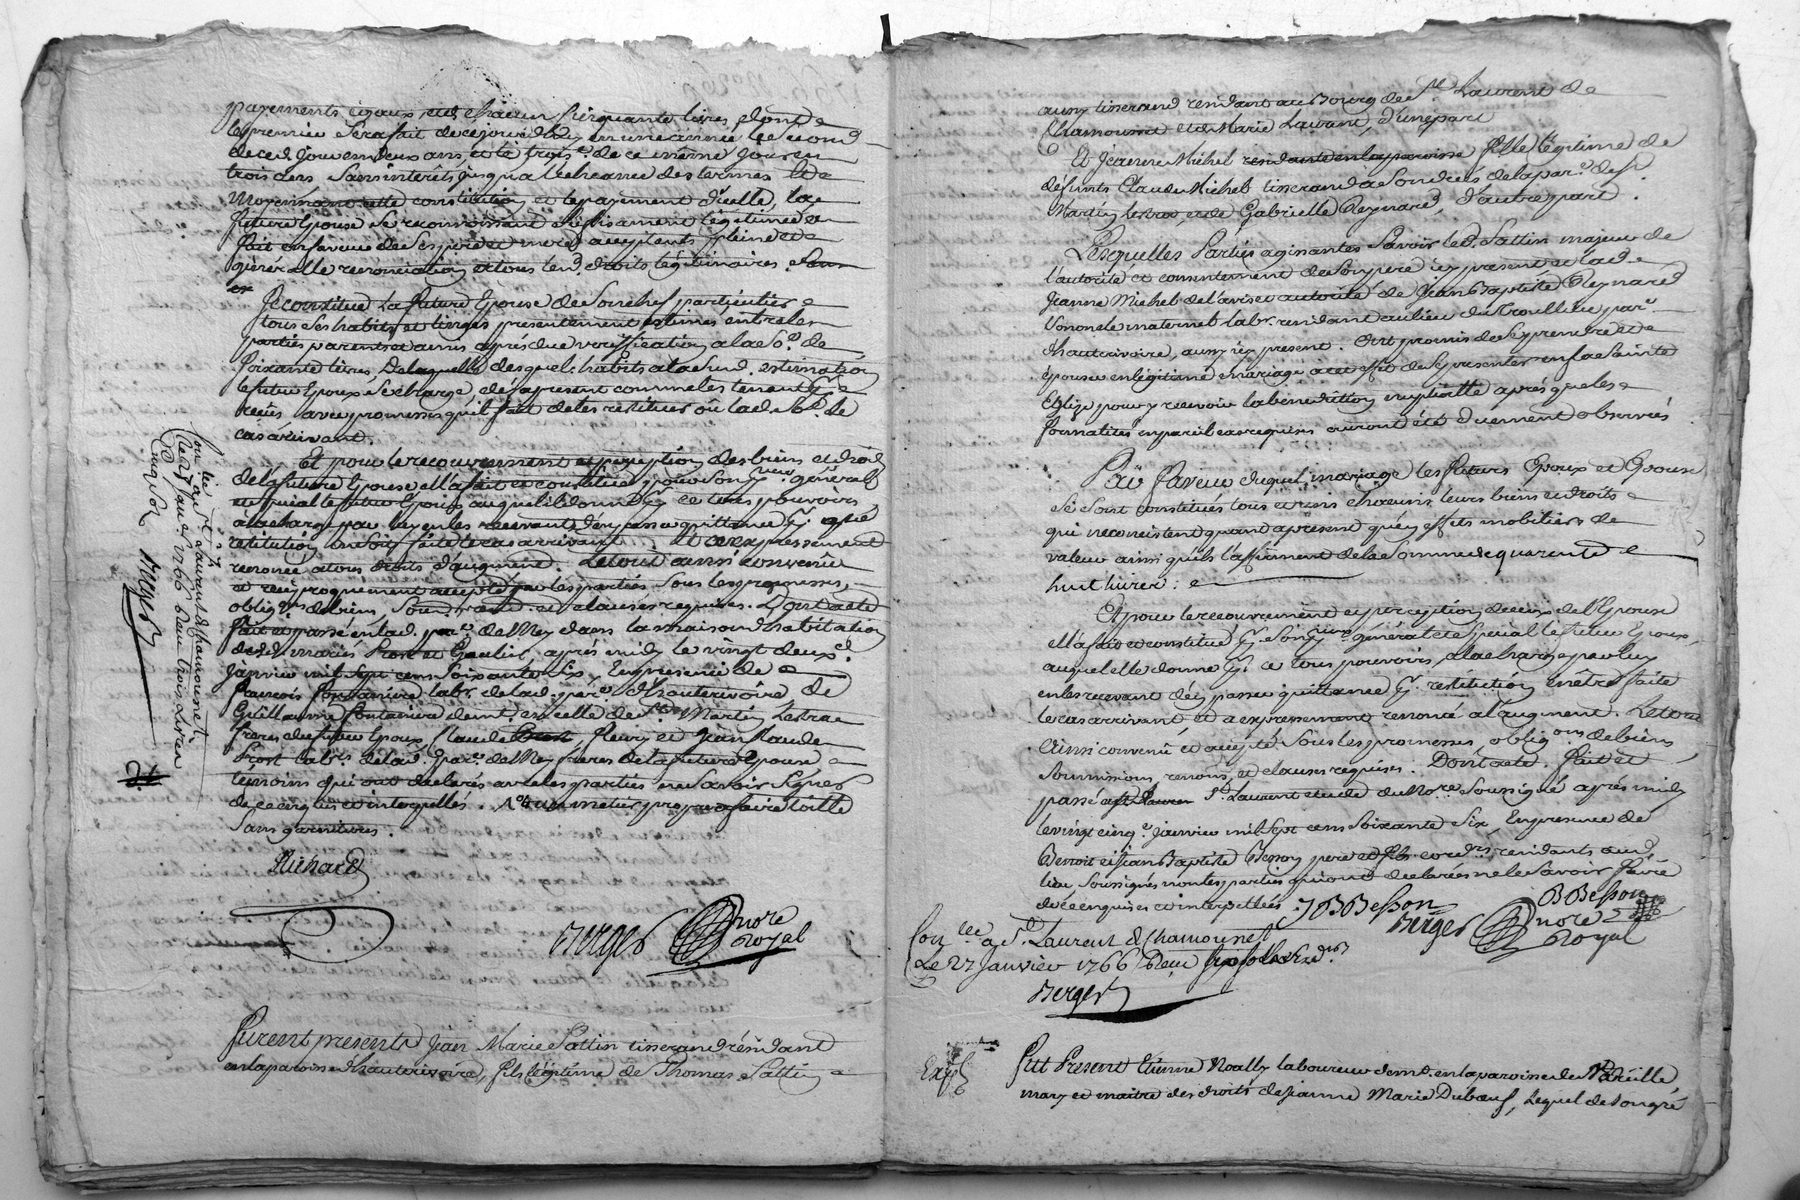 payements egaux de chacun cinquante livres, dont
le premier sera fait de ce jourd'huy en une année, le second
de ced. jour en deux ans, et le trois.e de ce même jour en
trois ans sans interêts jusqu'a l'echeance des termes
Moyennant cette constitution et le payement d'icelle, la
future Epouse se reconnoissant suffisament légitimée a
fait en faveur de ses pere et mere acceptants pleine et
générale renonciation a tous sesd. droits légitimaires.
Se constitue la future Epouse de son chef particulier
tous ses habits et linges présentement estimés entre les
parties parents et amis après due vériffication a la so.e de
soixante livres, De laquelle desquels habits a lad. estimation
le futur Epoux se charge, dès a present comme les tenant
reçus avec promesses qu'il fait de les restituer où lad. so.e le
cas arrivant.
Et pour le recouvrement et perception des biens et droits
de la future Epouse elle a fait et constitué pour son général
et spécial le futur Epoux auquel il donne ce tous pouvoirs
a la charge par luy en les recevant d'en passer quittance que
restitution en soit faite le cas arrivant et a expressement
renoncé a tous droits d'augment. Le tout ainsi convenû
et reciproquement accepté par les parties sous les promesses,
oblig.ons de biens, soum. renon. et clauses requises. Dont acte
fait et passé en lad. par.e de Mey dans la maison d'habitation
desd. mariés Prost et Goutit, après midy le vingt deux.e
janvier mil sept cens soixante six, En présence de
François Fontaniere labr. de lad. par.e d'hauterivoire de
Guillaume Fontaniere dem.t en celle de St. Martin Lestra
freres du futur Epoux Claude Fleury et Jean Claude
Prost labrs. de lad. par.e de Mey freres de la future Epouse
témoins qui ont declarés avec les parties ne savoir signer
de ce enquis et interpellés. un metier propre a faire toille
sans garnitures.
Richard
Berger no.re royal
Con.lé a St. Laurent de Chamousset
le 27 janv. 1766 Reçu trois livres
Berger
Furent presents Jean Marie Sattin tisserand résidant
en la paroisse d'hauterivoire, fils légitime de Thomas Sattin
aussy tisserand residant au Bourg de St. Laurent de
Chamousset et de Marie Laurent, d'une part
Et Jeanne Michel residante en la paroisse fille légitime de
défunts Claude Michel tisserand a de la par.e de St.
Martin lestra, et de Gabrielle Reynard, d'autre part.
Lesquelles Parties agissantes savoir led. Sattin majeur de
l'autorité et consentement de son pere icy present et lad.
Jeanne Michel de l'avis et autorité de Jean Baptiste Reynard
son oncle maternel labr. residant au lieu du par.e
d'hauterivoire, aussy icy present. Ont promis de se prendre et
épouser en légitime mariage a cet effet de se presenter en face Sainte
Eglise pour y recevoir la bénédiction nuptialle après que les
formalités en pareil cas requises auront été duement observées
En faveur duquel mariage les futurs Epoux et Epouse
se sont constitués tous et uns chacuns leurs biens et droits
qui ne consistent quand a présent qu'en effets mobiliers de
valeur ainsi qu'ils l'affirment de la somme de quarente
huit livres:
Et pour le recouvrement et perception de ceux de l'Epouse
elle a fait et constitué son général et spécial le futur Epoux,
auquel elle donne ce tous pouvoirs, a la charge par luy
en les recevant d'en passer quittance restitution en être faite
le cas arrivant et a expressement renoncé a l'augment. Le tout
ainsi convenû et accepté sous les promesses, oblig.ons de biens,
soumissions, renons. et clauses requises. Dont acte. Fait et
passé a St. Laurent etude du No.re soussigné après midy
le vingt cinq.e janvier mil sept cens soixante six, En presence de
Benoit et Jean Baptiste Besson pere et fils residants aud.
lieu, soussignés non les parties qui ont declarés ne le savoir faire
de ce enquises et interpellées. JB Besson B Besson
Berger no.re royal
Con.lé a St. Laurent de Chamousset
Le 27 janvier 1766 Reçu
Berger
Exp.
Fut Present Etienne Noally laboureur dem.t en la paroisse de
mary et maitre des droits de Jeanne Marie Duboeuf, lequel de son gré